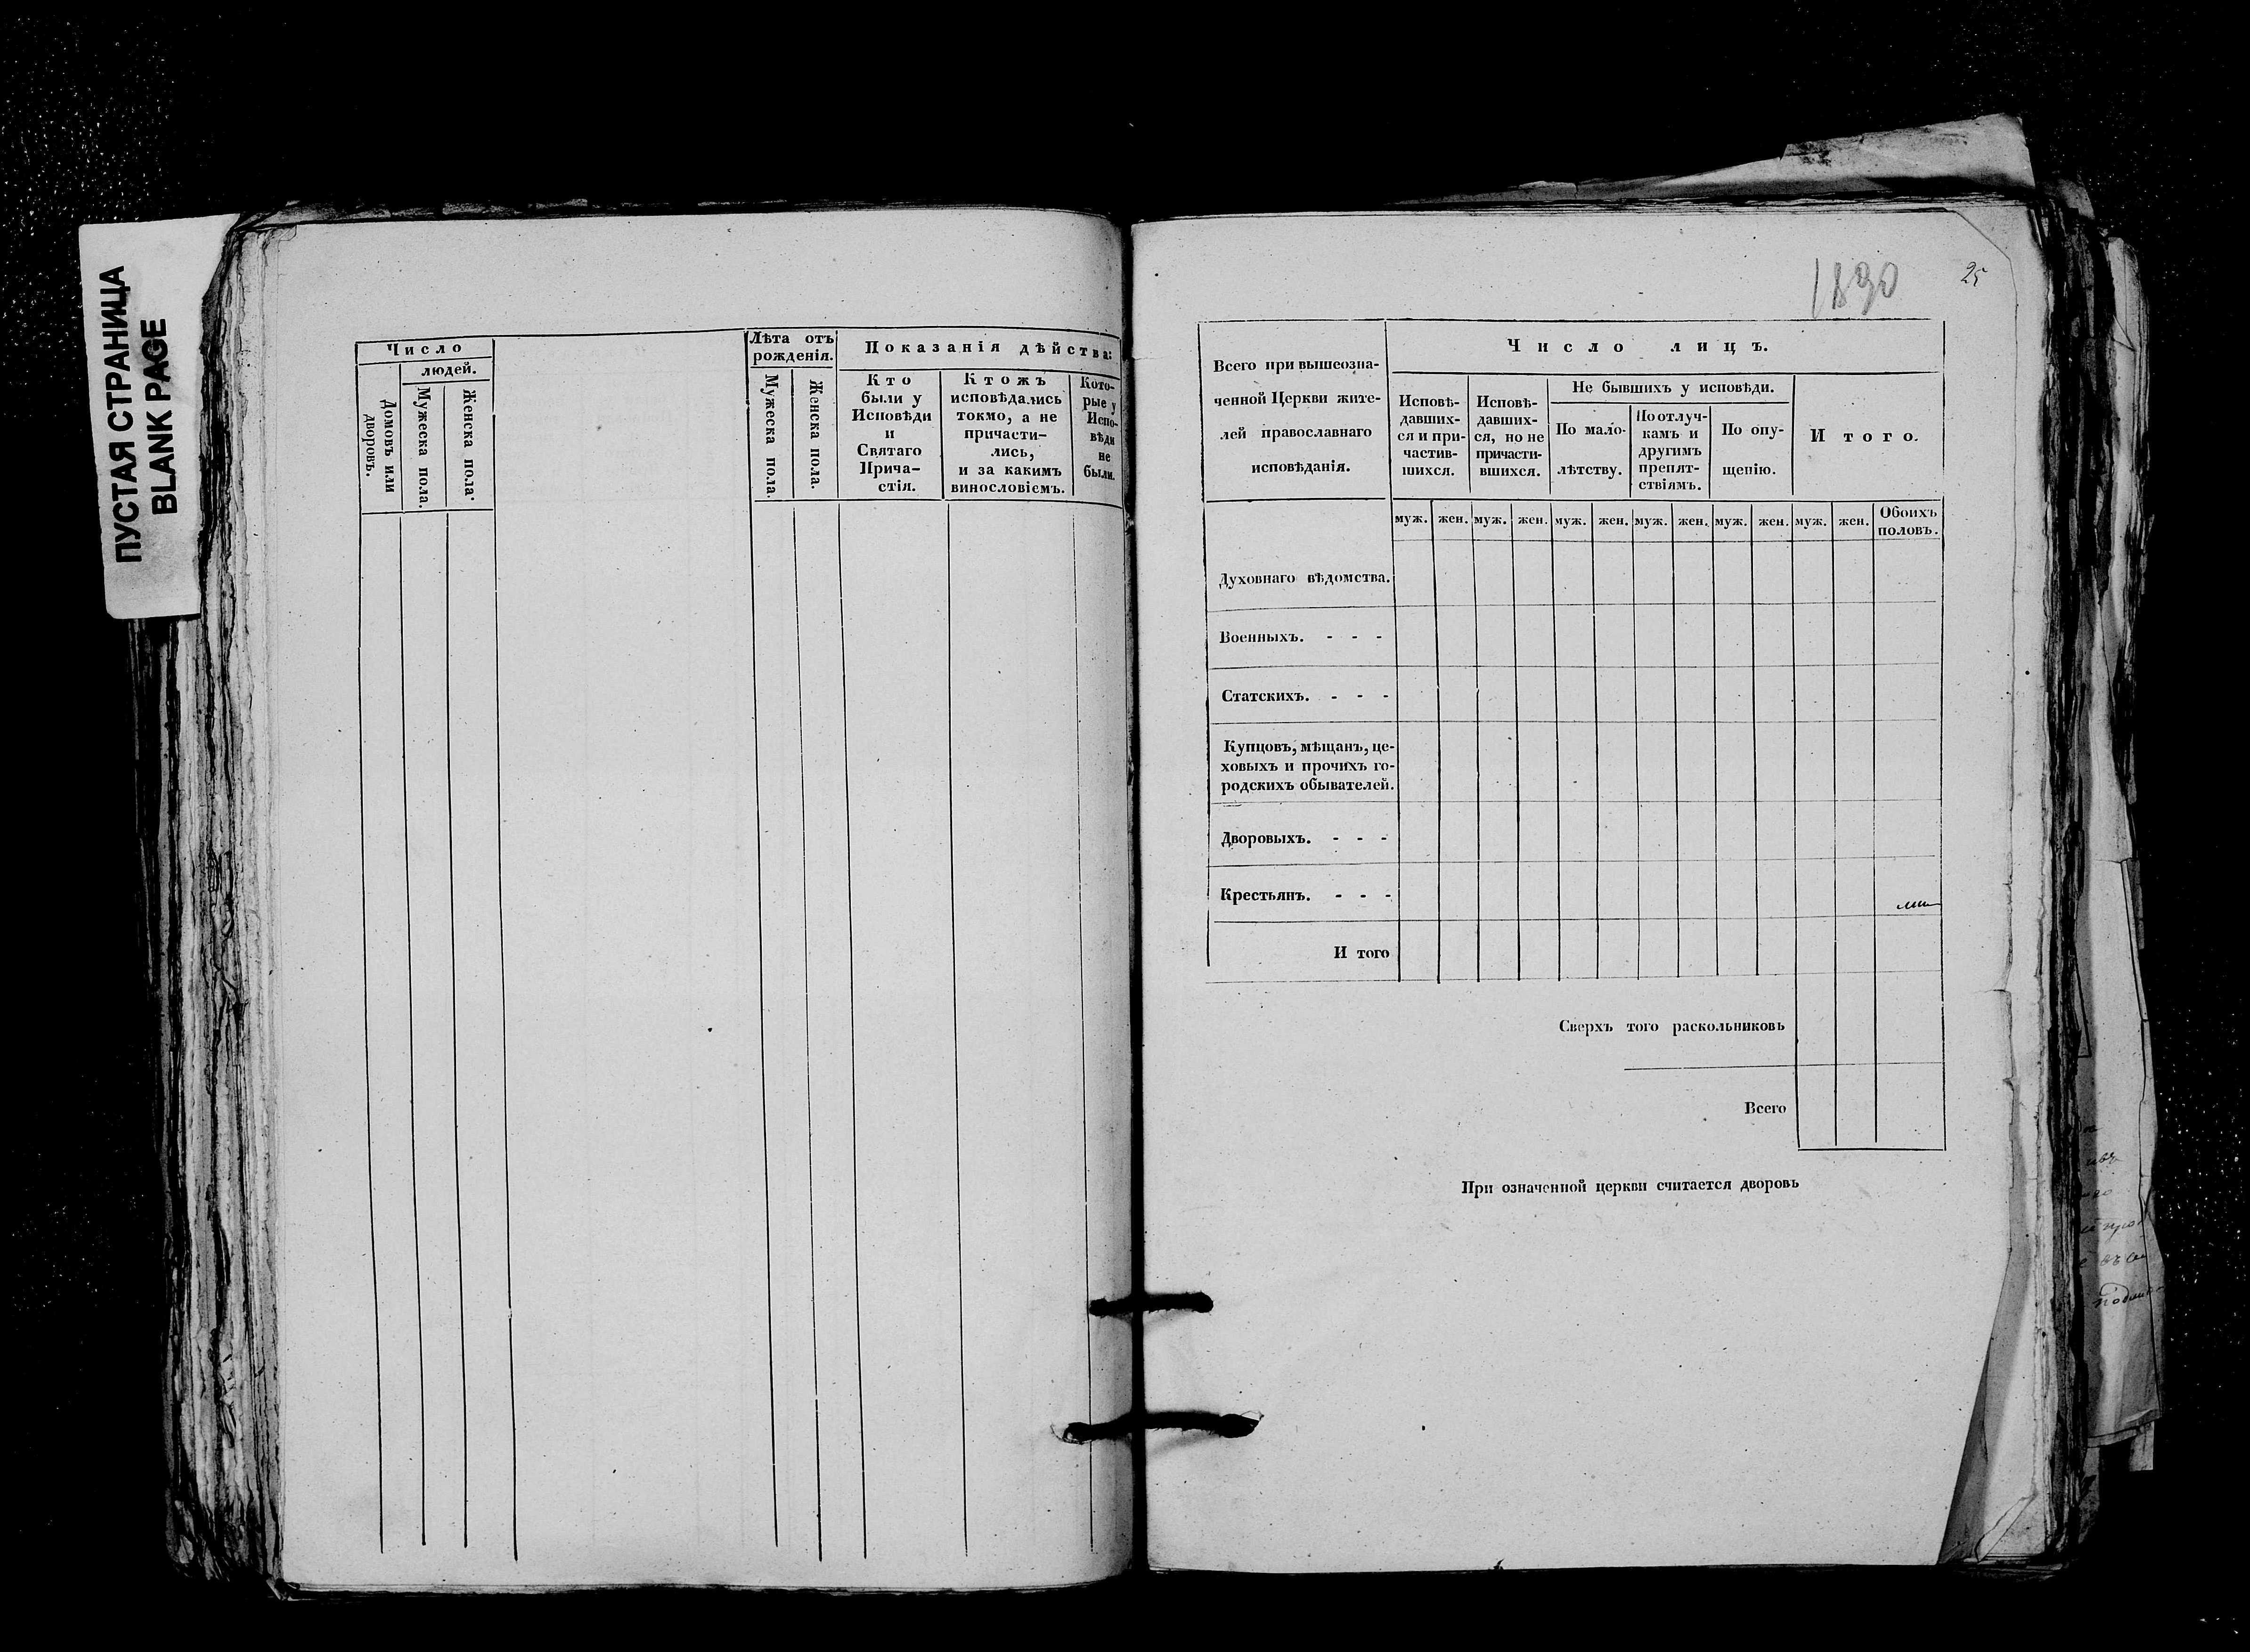 ПУСТАЯ СТРАНИЦА
BLANK PAGE
Число
людей.
Домовъ или дворовъ.
Мужеска пола.
Женска пола.
Лѣта отъ
рожденія.
Мужеска пола.
Женска пола.
Показанія дѣйства:
Кто
были у
Исповѣди
и
Святаго
Прича–
стія.
Ктожъ
исповѣдались
токмо, а не
причасти–
лись,
и за какимъ
винословіемъ.
Кото-
рые у
Испо-
вѣди
не
были.
1830
25
Всего при вышеозна-
ченной Церкви жите-
лей православнаго
исповѣданія.
Число лицъ.
Исповѣ-
давших-
ся и при-
частив-
шихся.
Исповѣ-
давших-
ся, но не
причасти-
вшихся.
Не бывшихъ у исповѣди.
По мало-
лѣтству.
По отлуч-
камъ и
другимъ
препят-
ствіямъ.
По опу-
щенію.
И того.
муж. жен. муж. жен. муж. жен. муж. жен. муж. жен. муж. жен. Обоихъ
половъ.
Духовнаго вѣдомства.
Военныхъ. - - -
Статскихъ. - - -
Купцовъ, мѣщанъ, це-
ховыхъ и прочихъ го-
родскихъ обывателей.
Дворовыхъ. - - -
Крестьянъ. - - -
И того
Сверхъ того раскольниковъ
Всего
При означенной церкви считается дворовъ